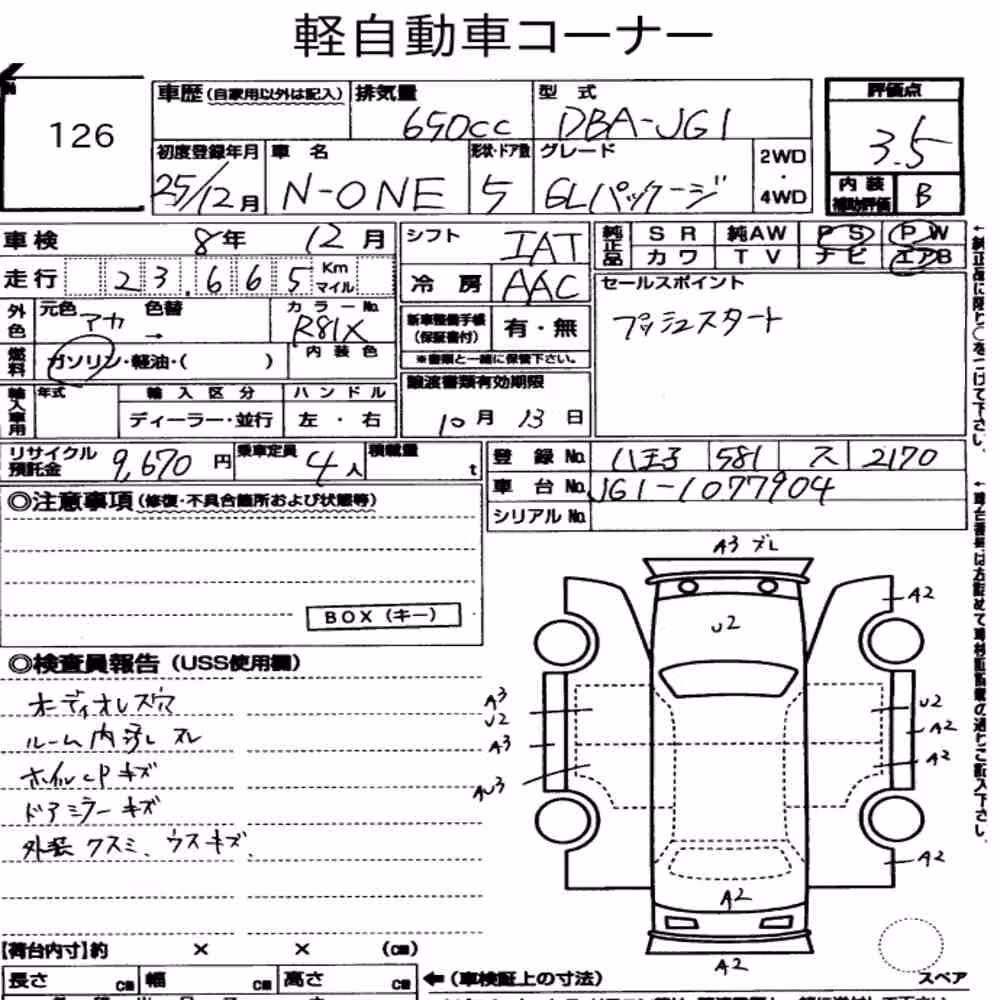 軽自動車コーナー
126
車歴(自家用以外は記入) 排気量 650cc 型式 DBA-JG1
評価点 3.5
初度登録年月 25/12月 車名 N-ONE 形状・ドア数 5 グレード GLパッケージ 2WD・4WD
内装補助評価 B
車検 8年 12月 シフト IAT 純正品 SR 純AW PS PW
カワ TV ナビ エアB
走行 23.665 Km マイル 冷房 AAC セールスポイント
プッシュスタート
外色 元色 アカ 色替 → カラーNo. R81X 新車整備手帳(保証書付) 有・無
※書類と一緒に保管下さい。
燃料 ガソリン・軽油・( ) 内装色
輸入車用 年式 輸入区分 ハンドル 譲渡書類有効期限
ディーラー・並行 左・右 10月13日
リサイクル預託金 9,670円 乗車定員 4人 積載量 t 登録No. 八王子 581 ス 2170
車台No. JG1-1077904
シリアルNo.
◎注意事項(修復・不具合箇所および状態等)
BOX(キー)
◎検査員報告(USS使用欄)
オーディオレス穴
ルーム内汚レ スレ
ホイルcPキズ
ドアミラーキズ
外装クスミ、ウスキズ、
A3 ズレ
A2
U2
A3
U2
U2
A2
A3
A2
AU3
A2
A2
A2
スペア
【荷台内寸】約 × × (cm)
長さ cm 幅 cm 高さ cm ←(車検証上の寸法)